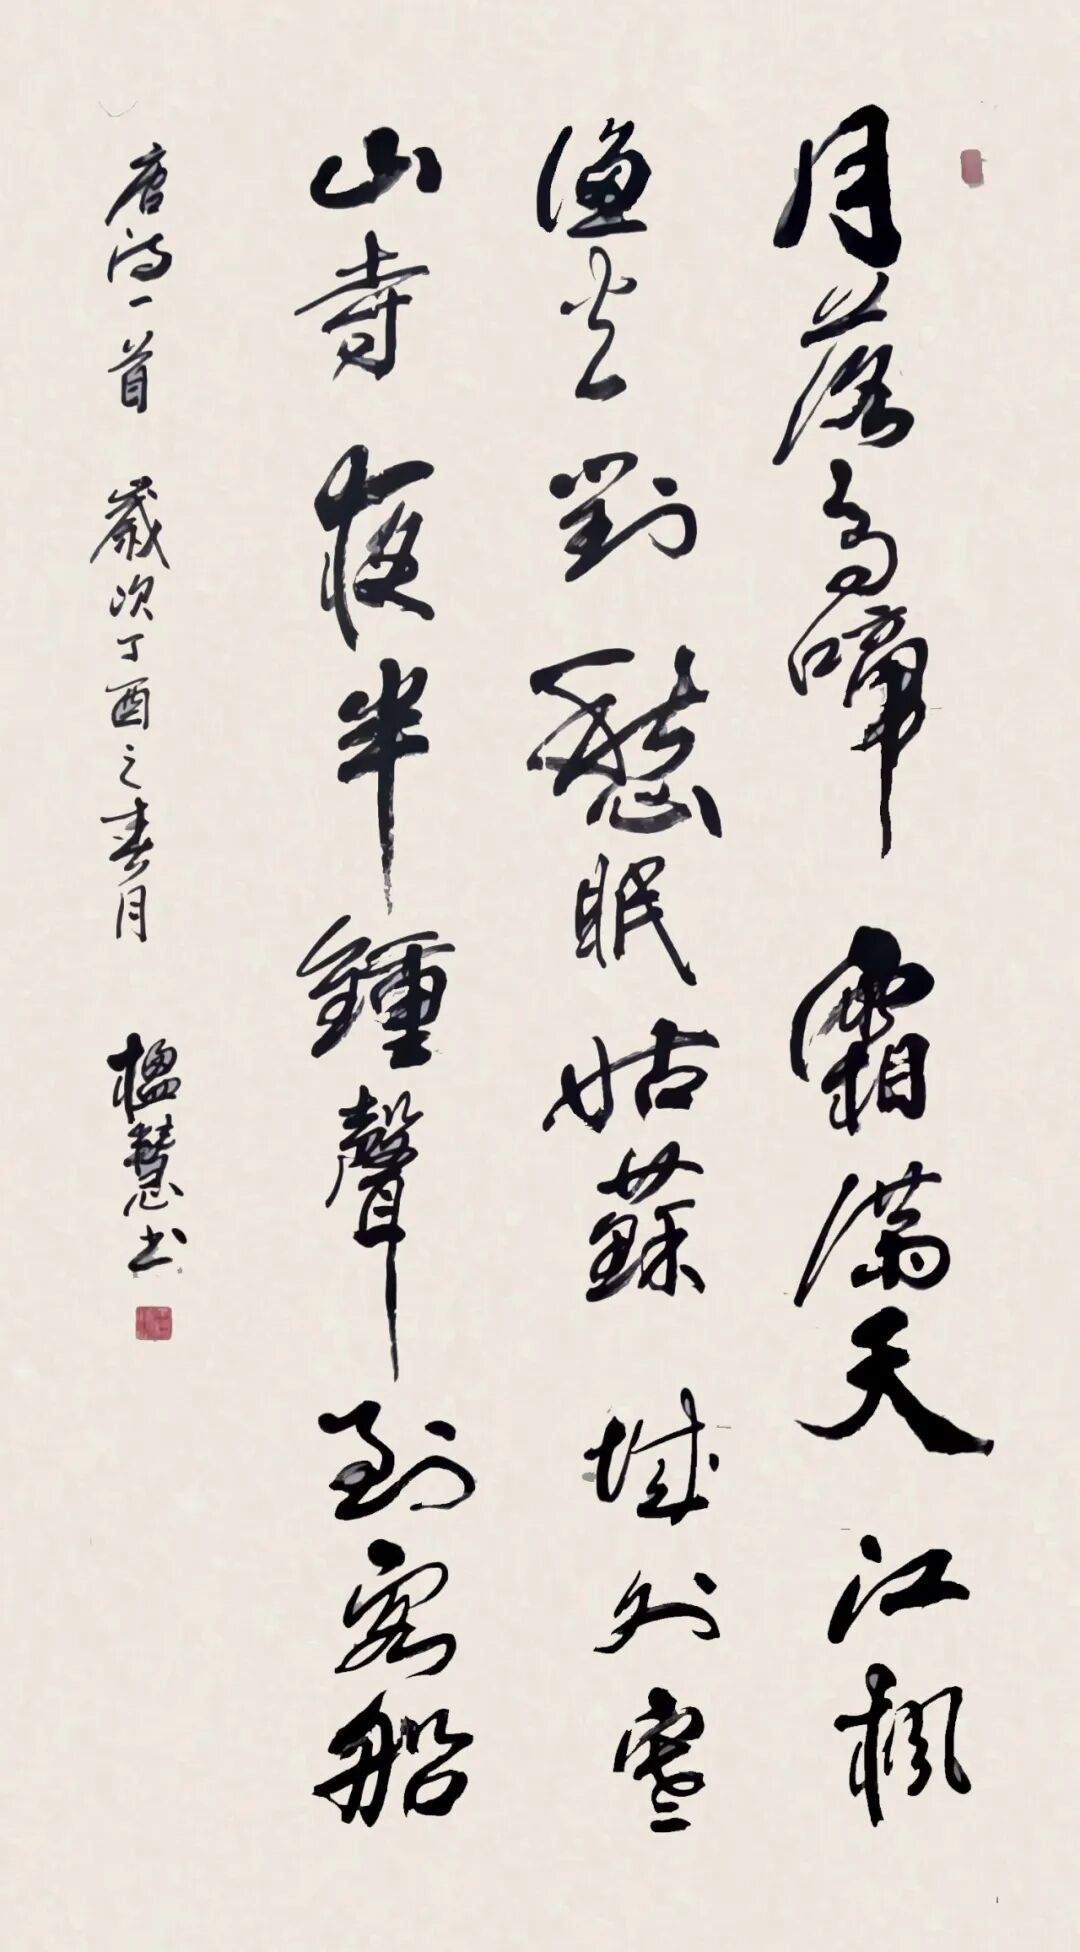 月落烏啼霜滿天江楓
漁火對愁眠姑蘇城外寒
山寺夜半鍾聲到客船
唐詩一首 歲次丁酉之春月 慧书